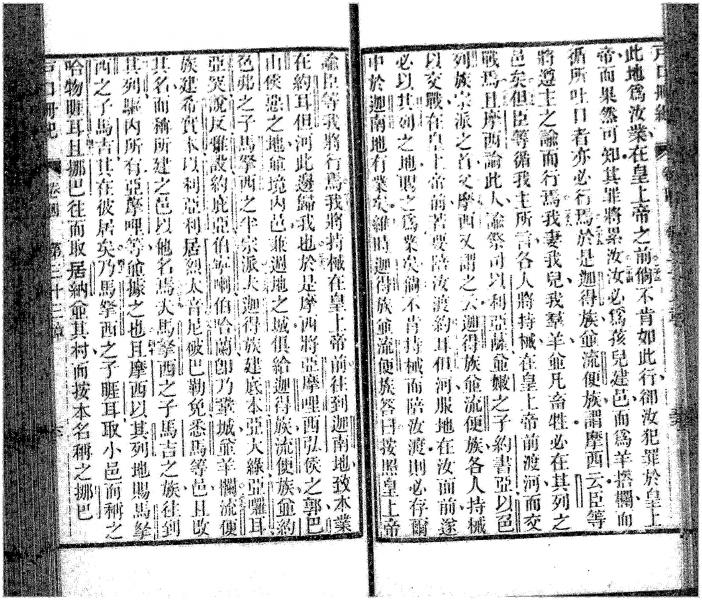 戶口冊紀
此地為汝業在皇上帝之前倘不肯如此行卻汝犯罪於皇上
帝而果然可知其罪將累汝汝必為孩兒建邑而為羊搭欄而
循所吐口者亦必行焉於是迦得族並流便族謂摩西云臣等
將遵主之諭而行焉我妻我兒我羣羊並凡畜牲必在其列之
邑矣但臣等循我主所言各人將持械在皇上帝前渡河而交
戰焉且摩西諭此人諭祭司以利亞薩並嫩之子約書亞以邑
列族宗派之首父摩西又謂之云迦得族並流便族各人持械
以交戰在皇上帝前若要陪汝渡約耳但河服地在汝面前遂
必以其列之地賜之為業矣倘不肯持械而陪汝渡則必存爾
中於迦南地有業矣維時迦得族並流便族答曰按照皇上帝
諭臣等我將行焉我將持械在皇上帝前往到迦南地致本業
在約耳但河此邊歸我也於是摩西將亞摩哩西弘侯之郭巴
山侯之地並境內邑兼週地之城俱給迦得族流便族並約
色弗之子馬拏西之半宗派夫迦得族建底本亞大綠亞囉耳
亞哭說反雅設約庇亞伯喇伯哈蘭卽乃鞏城並羊欄流便
族建希實本以利亞利居烈太音尼破巴勒免悉馬等邑且改
其名而稱所建之邑以他名焉夫馬拏西之子馬吉之族往到
其列驅內所有亞摩哩等並據之也且摩西以其列地賜馬拏
西之子馬吉其在彼居矣乃馬拏西之子睚耳取小邑而稱之
哈物睚耳且挪巴往而取居納並其村而按本名稱之挪巴
戶口冊紀 卷四 第三十二章